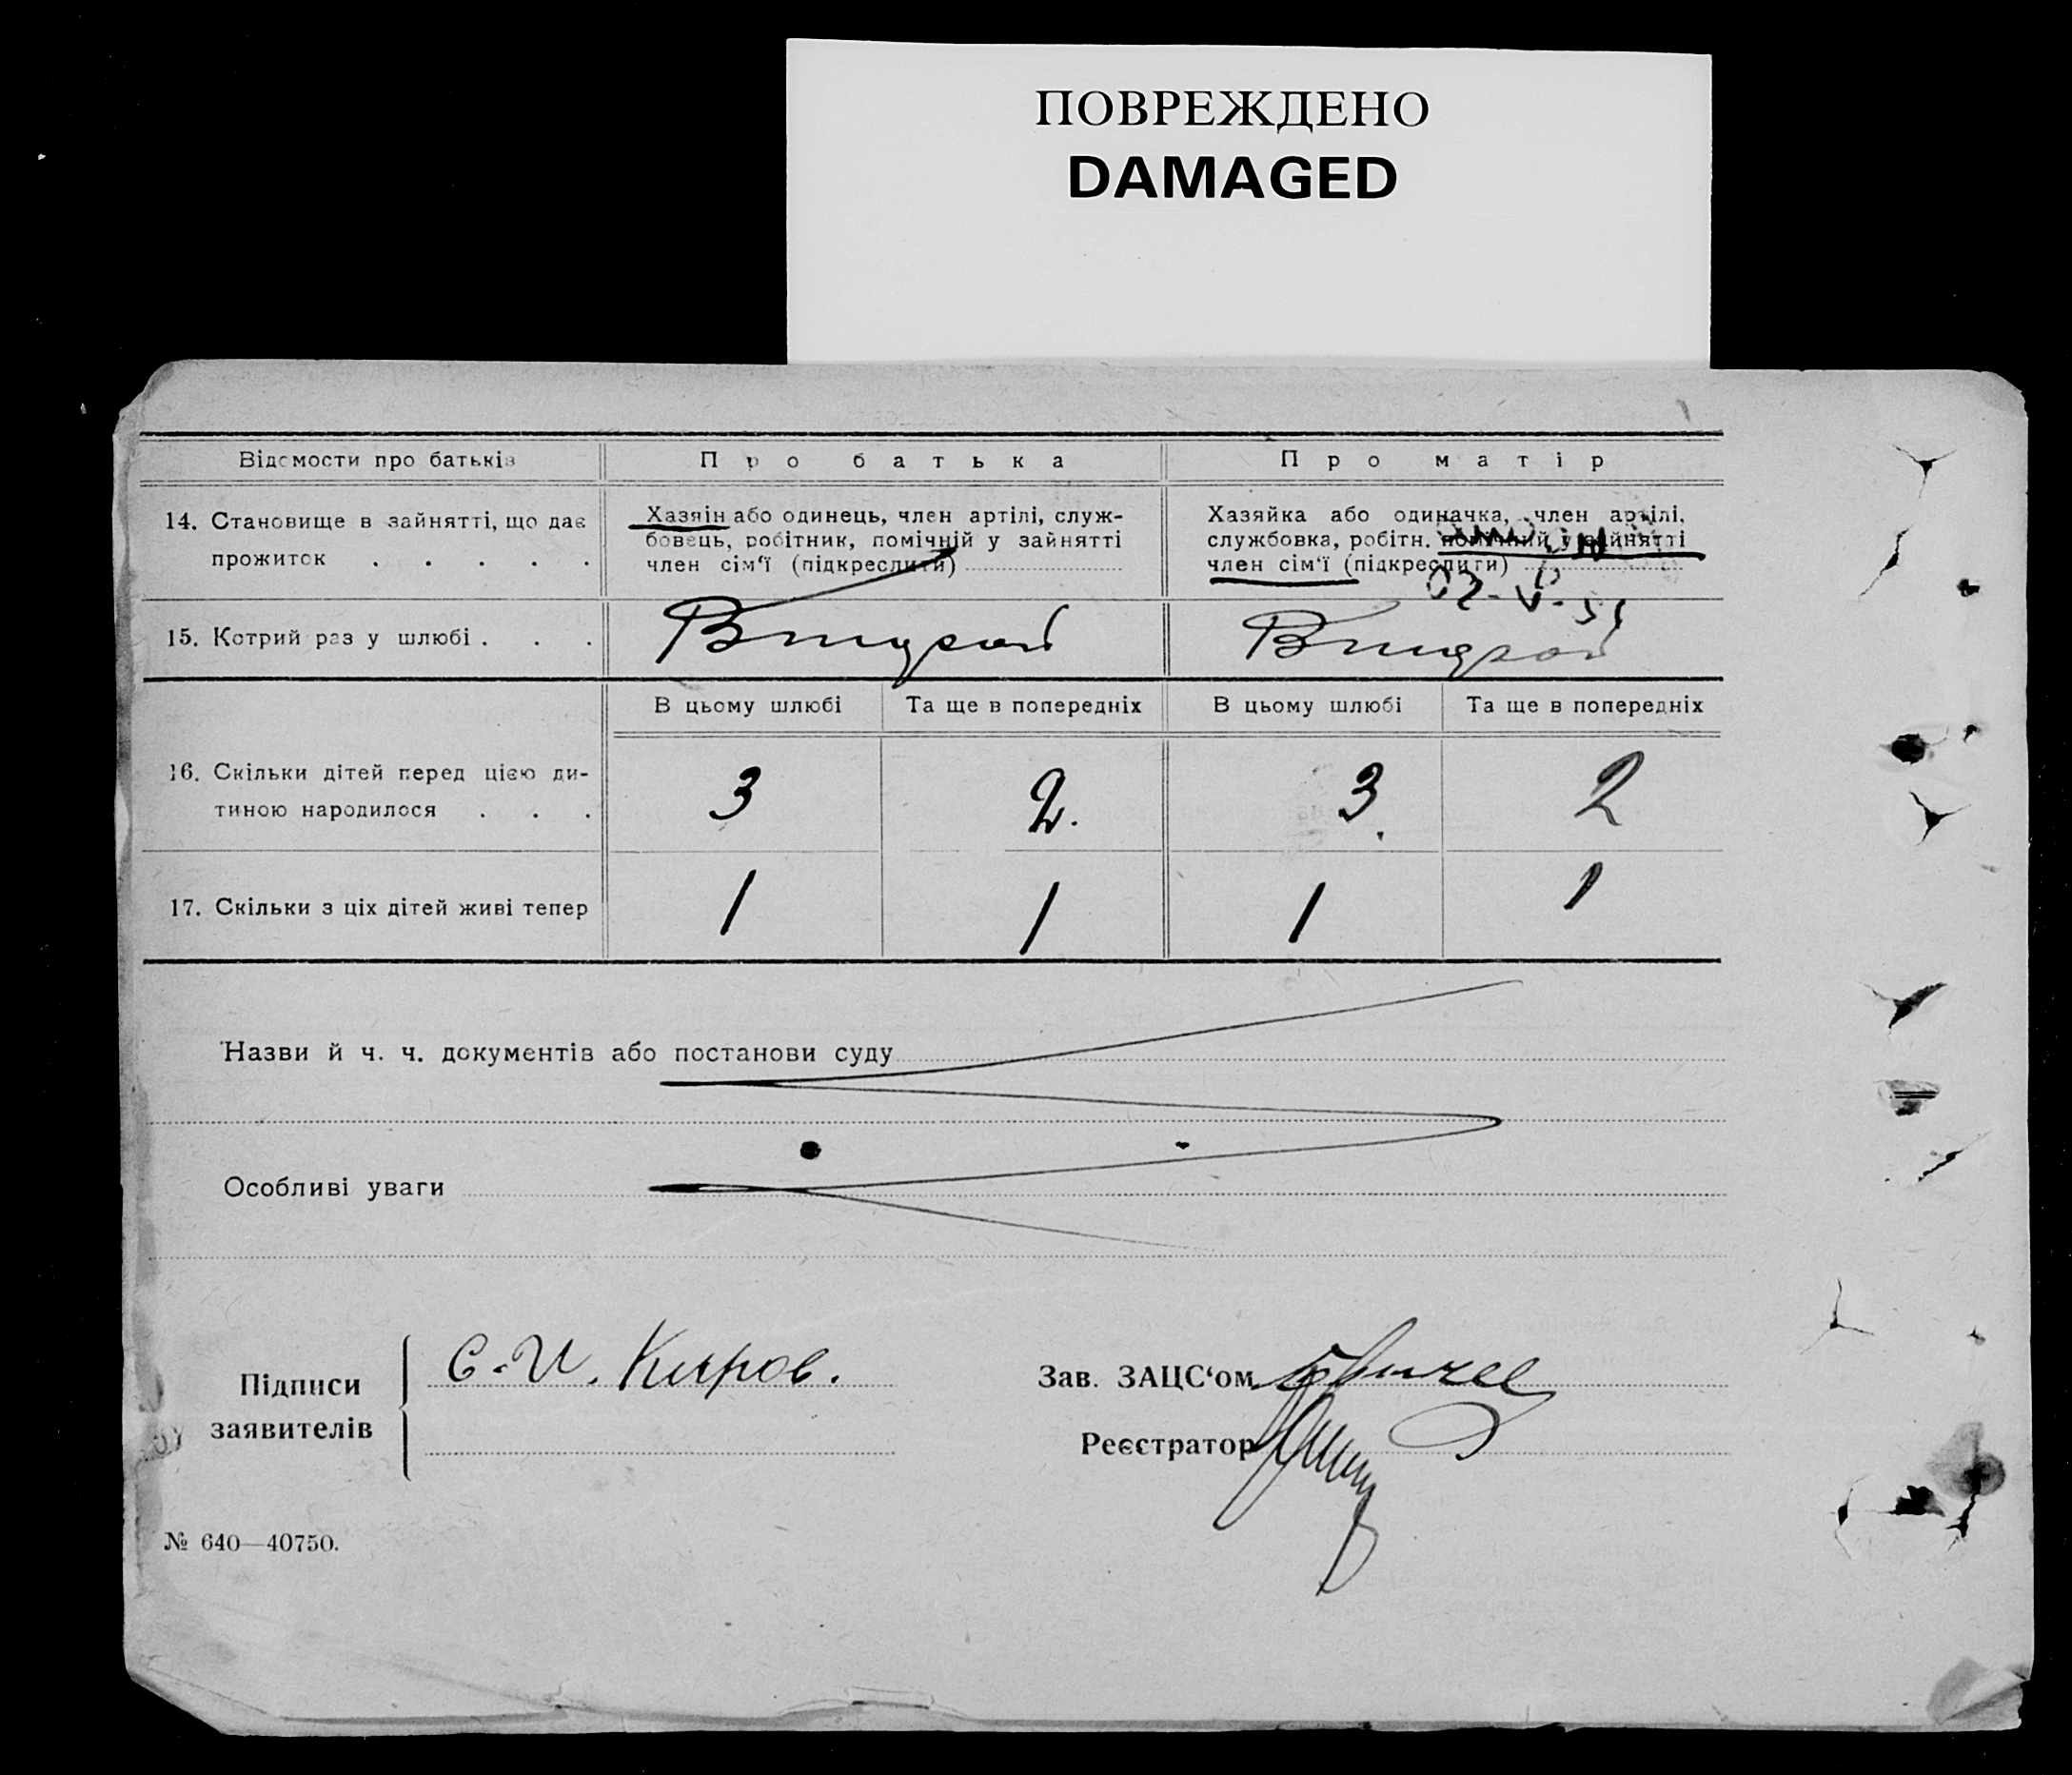 ПОВРЕЖДЕНО
DAMAGED
Відомости про батьків
Про батька
Про матір
14. Становище в зайнятті, що дає
прожиток . . . . .
Хазяін або одинець, член артілі, служ-
бовець, робітник, помічній у зайнятті
член сім‘ї (підкреслити)
Хазяйка або одиначка, член артілі,
службовка, робітн. помічний у зайнятті
член сім‘ї (підкреслити)
15. Котрий раз у шлюбі . . .
Второй
Второй
В цьому шлюбі
Та ще в попередніх
В цьому шлюбі
Та ще в попередніх
16. Скільки дітей перед цією ди-
тиною народилося . . .
3
2.
3
2
17. Скільки з ціх дітей живі тепер
1
1
1
1
Назви й ч. ч. документів або постанови суду
Особливі уваги
Підписи
заявителів
С. И. Киров.
Зав. ЗАЦС‘ом
Реєстратор
№ 640—40750.